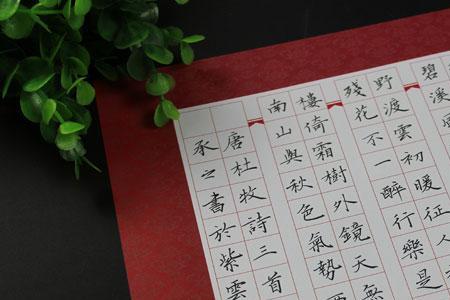 碧溪
野渡雲初暖征
殘花不一醉行樂是
樓倚霜樹外鏡天無
南山與秋色氣勢
唐杜牧詩三首
承之書於紫雲